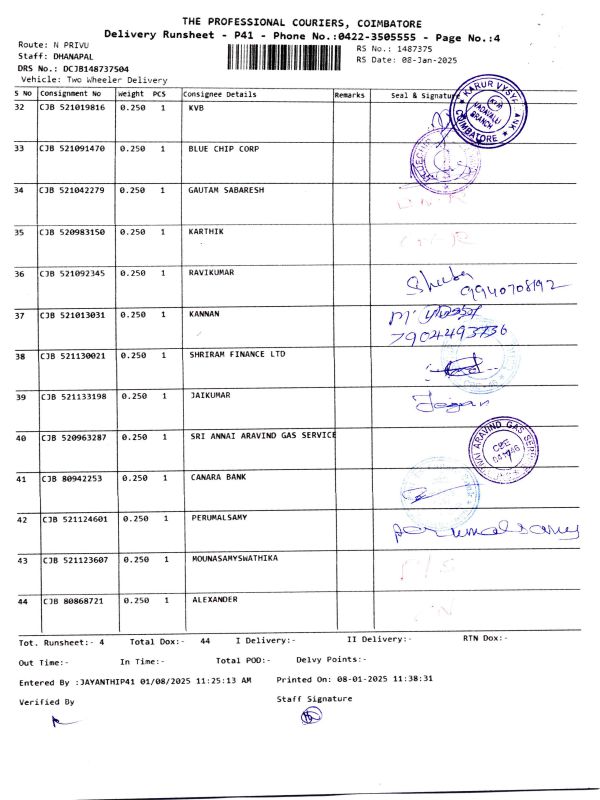 THE PROFESSIONAL COURIERS, COIMBATORE
Delivery Runsheet - P41 - Phone No.:0422-3505555 - Page No.:4
Route: N PRIVU
RS No.: 1487375
Staff: DHANAPAL
RS Date: 08-Jan-2025
DRS No.: DCJB148737504
Vehicle: Two Wheeler Delivery
S No Consignment No Weight PCS Consignee Details Remarks Seal & Signature
32 CJB 521019816 0.250 1 KVB
KARUR VYSYA BANK
VADAVALLI BRANCH
COIMBATORE
33 CJB 521091470 0.250 1 BLUE CHIP CORP
34 CJB 521042279 0.250 1 GAUTAM SABARESH
35 CJB 520983150 0.250 1 KARTHIK
36 CJB 521092345 0.250 1 RAVIKUMAR
9940708192
37 CJB 521013031 0.250 1 KANNAN
7904493736
38 CJB 521130021 0.250 1 SHRIRAM FINANCE LTD
39 CJB 521133198 0.250 1 JAIKUMAR Jegan
40 CJB 520963287 0.250 1 SRI ANNAI ARAVIND GAS SERVICE
ARAVIND GAS
CBE
41 CJB 80942253 0.250 1 CANARA BANK
42 CJB 521124601 0.250 1 PERUMALSAMY Perumalsamy
43 CJB 521123607 0.250 1 MOUNASAMYSWATHIKA
44 CJB 80868721 0.250 1 ALEXANDER
Tot. Runsheet:- 4 Total Dox:- 44 I Delivery:- II Delivery:- RTN Dox:-
Out Time:- In Time:- Total POD:- Delvy Points:-
Entered By :JAYANTHIP41 01/08/2025 11:25:13 AM Printed On: 08-01-2025 11:38:31
Verified By Staff Signature